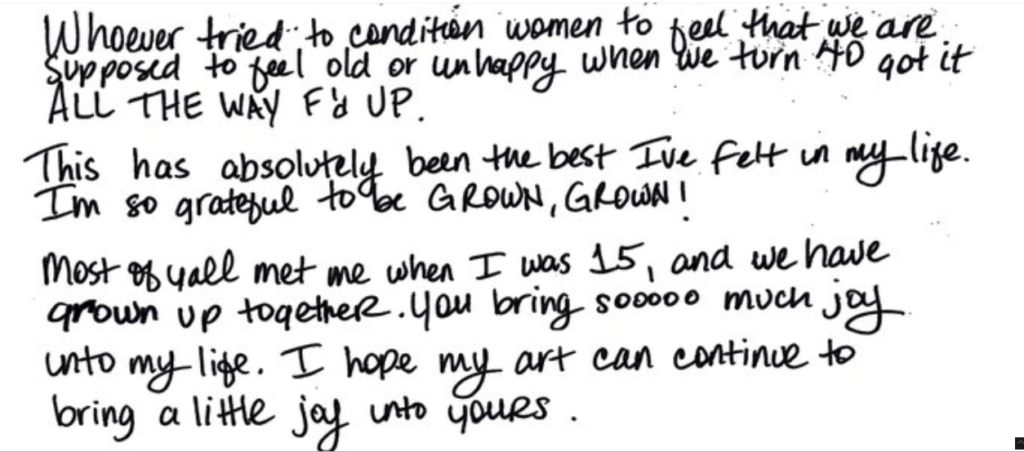 Whoever tried to condition women to feel that we are
supposed to feel old or unhappy when we turn 40 got it
ALL THE WAY F'd UP.
This has absolutely been the best Ive felt in my life.
Im so grateful to be GROWN, GROWN!
Most of yall met me when I was 15, and we have
grown up together. You bring sooooo much joy
unto my life. I hope my art can continue to
bring a little joy unto yours.